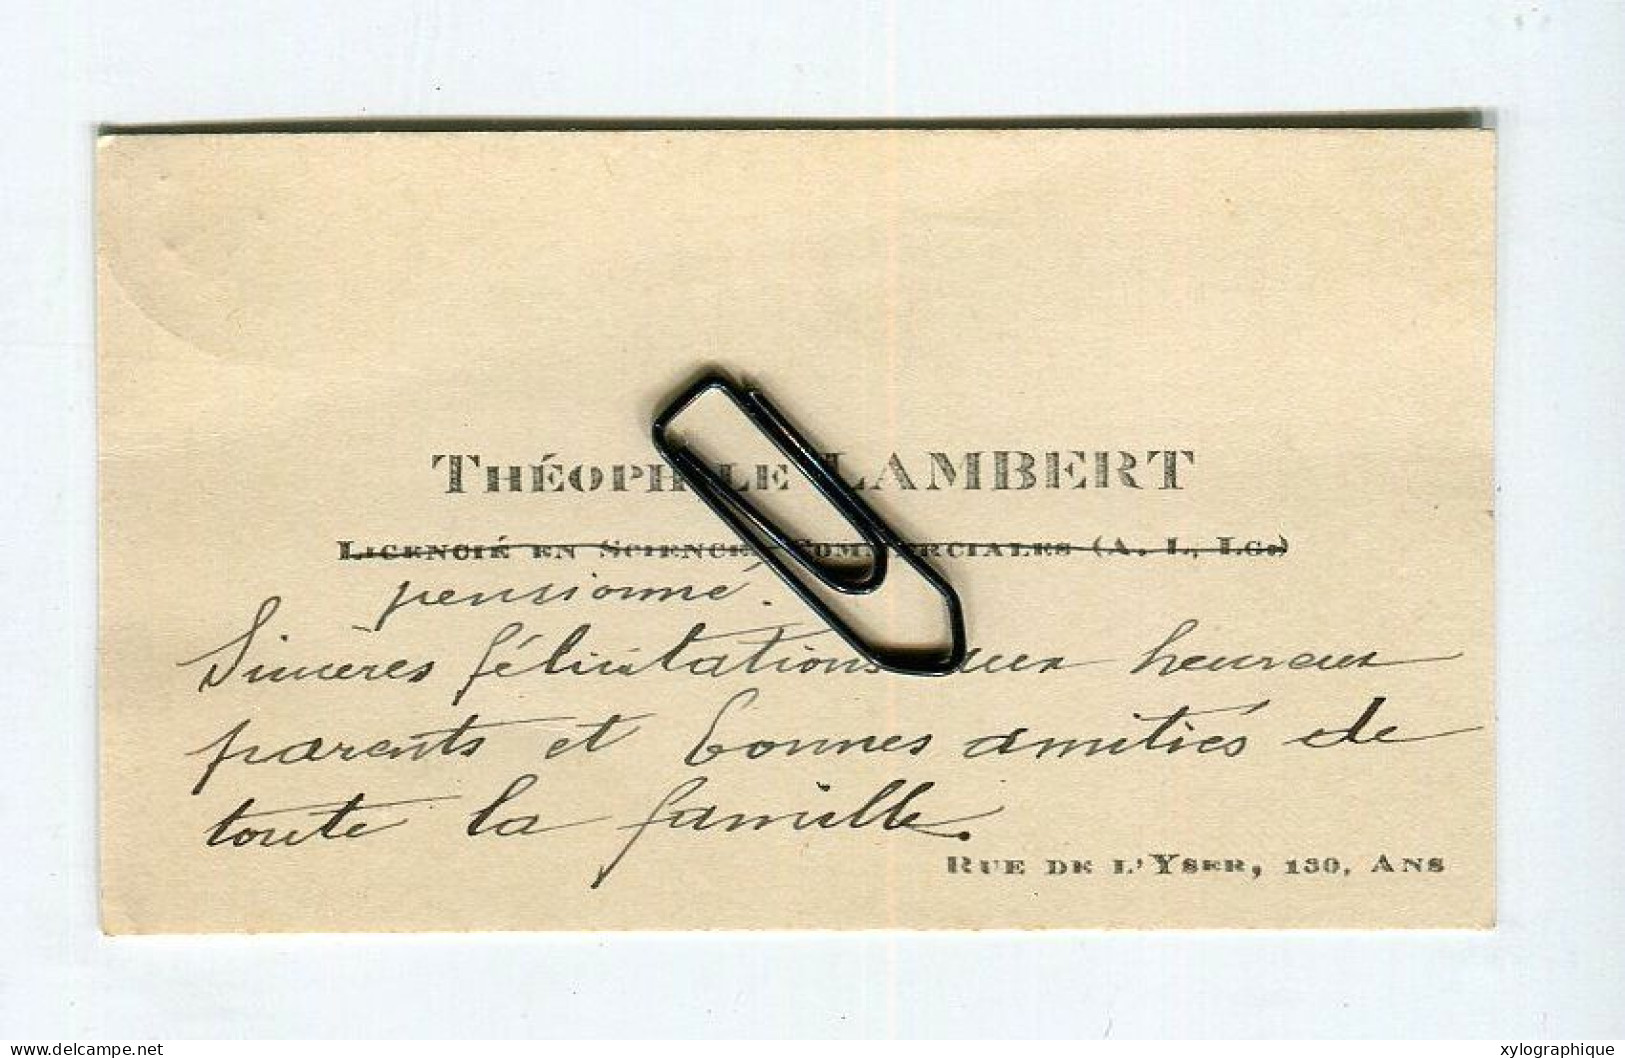 THÉOPHILE LAMBERT
LICENCIÉ EN SCIENCES COMMERCIALES (A. I. LG.)
pensionné.
Sincères félicitations aux heureux
parents et bonnes amitiés de
toute la famille.
RUE DE L'YSER, 130, ANS
www.delcampe.net
xylographique